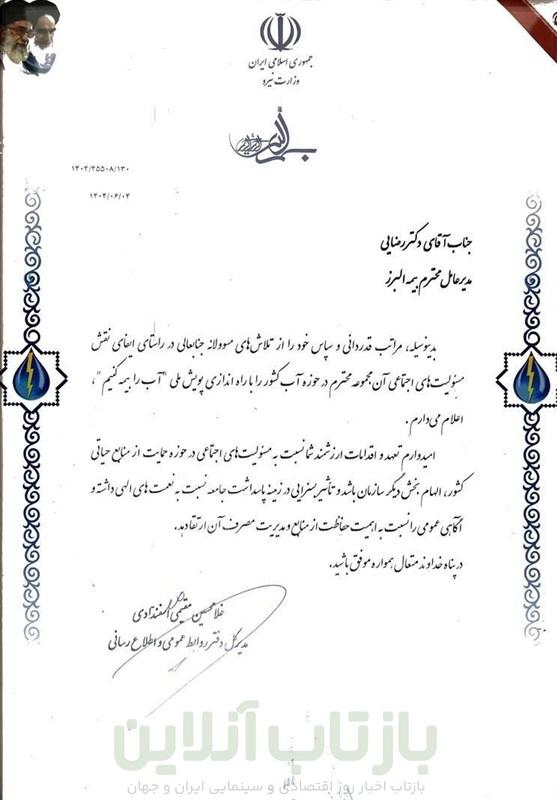 جمهوری اسلامی ایران
وزارت نیرو
۱۴۰۴/۲۵۵۰۸/۱۳۰
۱۴۰۴/۰۶/۰۴
جناب آقای دکتر رضایی
مدیرعامل محترم بیمه البرز
بدینوسیله، مراتب قدردانی و سپاس خود را از تلاش‌های مسوولانه جنابعالی در راستای ایفای نقش
مسئولیت‌های اجتماعی آن مجموعه محترم در حوزه آب کشور را با راه اندازی پویش ملی "آب را بیمه کنیم"،
اعلام می‌دارم.
امیدوارم تعهد و اقدامات ارزشمند شما نسبت به مسئولیت‌های اجتماعی در حوزه حمایت از منابع حیاتی
کشور، الهام بخش دیگر سازمان باشد و تأثیر بسزایی در زمینه پاسداشت جامعه نسبت به نعمت‌های الهی داشته و
آگاهی عمومی را نسبت به اهمیت حفاظت از منابع و مدیریت مصرف آن ارتقا دهد.
در پناه خداوند متعال همواره موفق باشید.
غلامحسین مقیمی اسفندآبادی
مدیرکل دفتر روابط عمومی و اطلاع رسانی
بازتاب آنلاین
بازتاب اخبار روز اقتصادی و سینمایی ایران و جهان